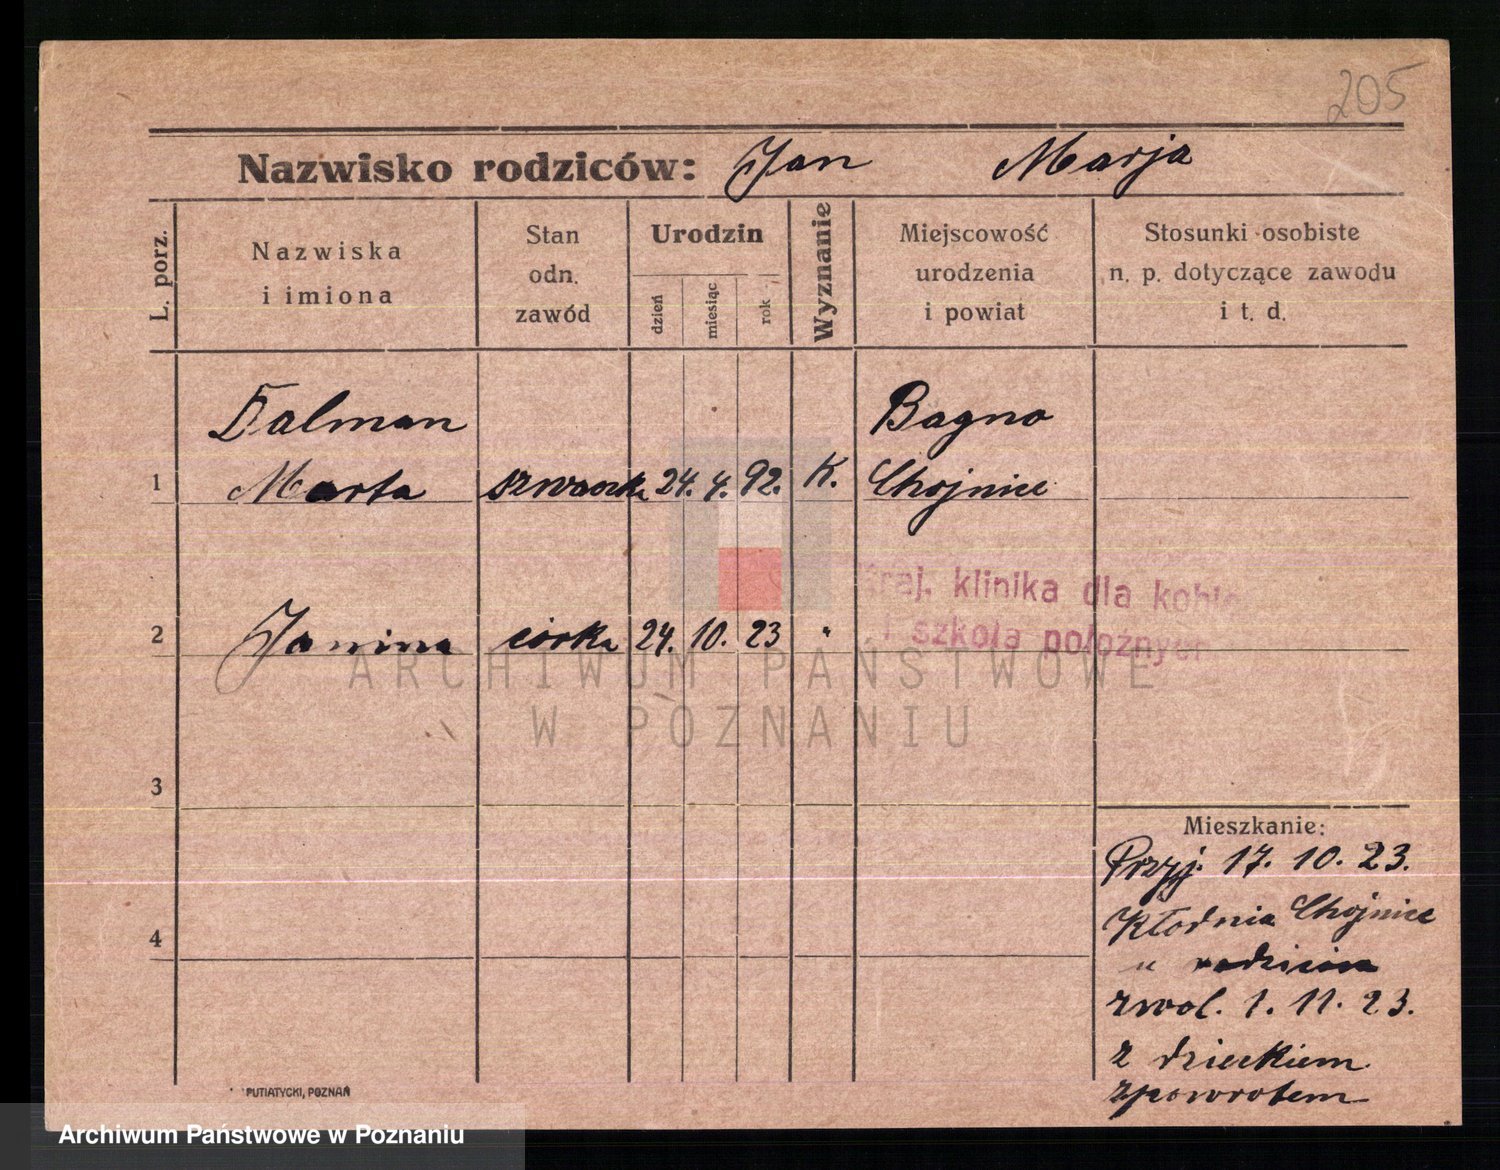 205
Nazwisko rodziców: Jan Marja
L. porz.
Nazwiska
i imiona
Stan
odn.
zawód
Urodzin
dzień
miesiąc
rok
Wyznanie
Miejscowość
urodzenia
i powiat
Stosunki osobiste
n. p. dotyczące zawodu
i t. d.
Dalman Bagno
1 Marta szwaczka 24. 4. 92. K. Chojnice
Kraj. klinika dla kobie
i szkoła położnyc
2 Janina córka 24. 10. 23 "
ARCHIWUM PAŃSTWOWE
W POZNANIU
3
Mieszkanie:
Przyj. 17. 10. 23.
Kłodnia Chojnice
4
" rodziców
zwol. 1. 11. 23.
z dzieckiem
zpowrotem
PUTIATYCKI, POZNAŃ
Archiwum Państwowe w Poznaniu